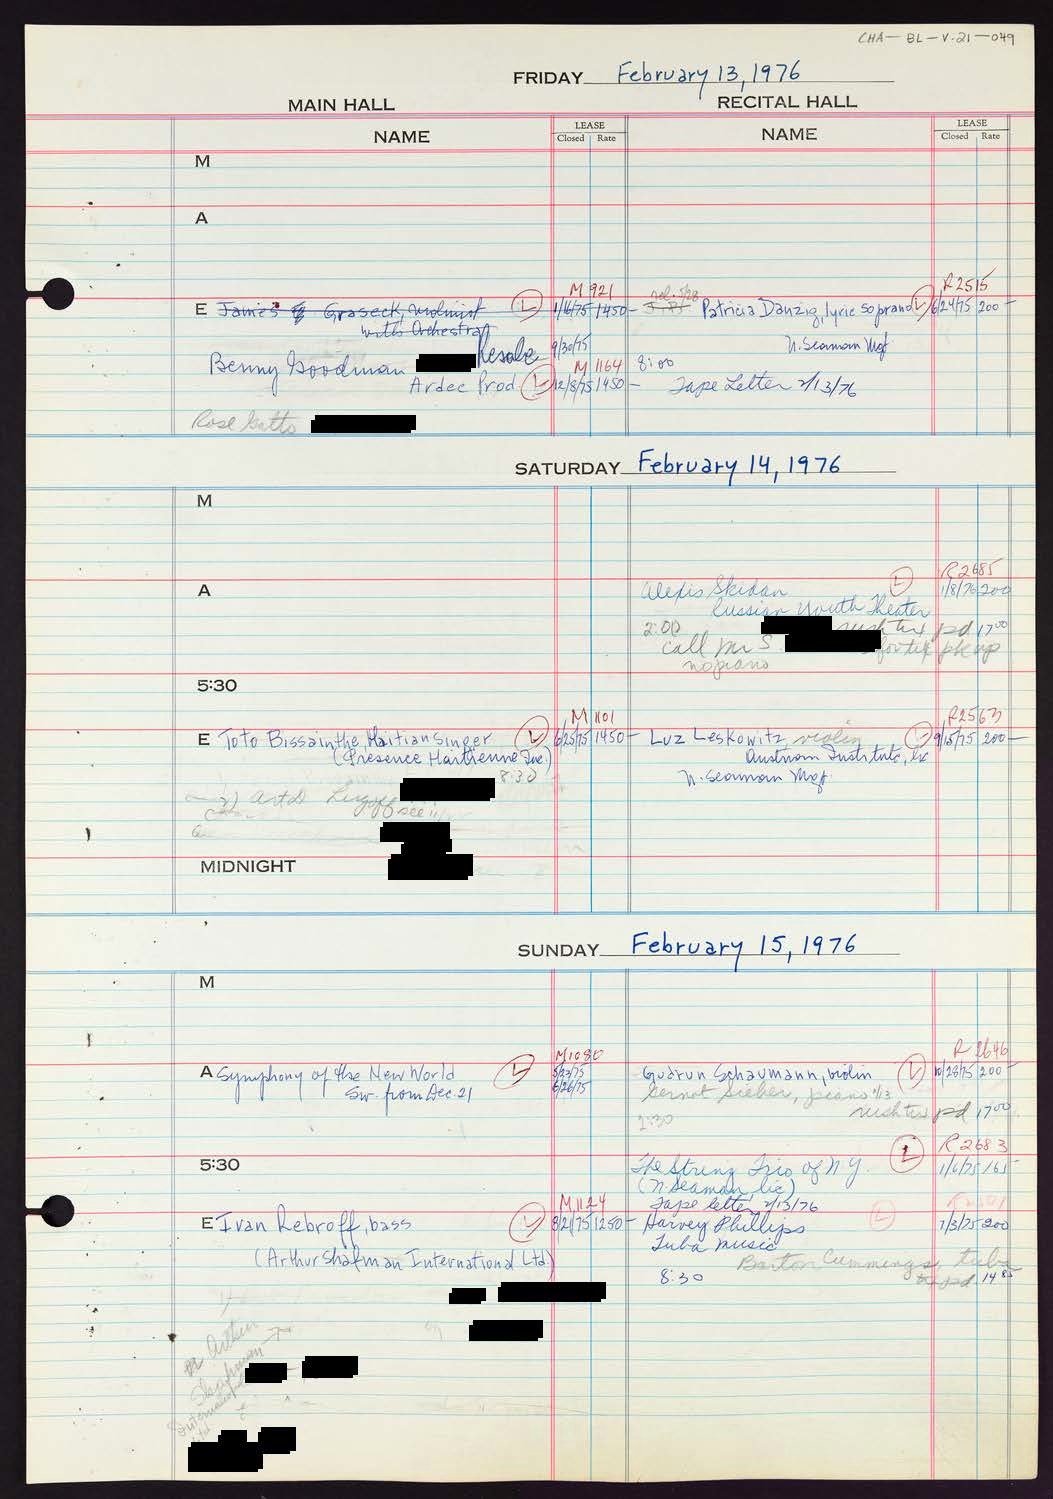 CHA-BL-V.21-049
FRIDAY February 13, 1976
MAIN HALL
RECITAL HALL
NAME
LEASE
Closed Rate
NAME
LEASE
Closed Rate
M
A
M 921
R2515
E James Graseck, violinist
with Orchestra
L 1/16/75 1450-
Patricia Danzig, lyric soprano L 6/24/75 200-
N. Seaman Mgt
Resale 9/30/75
Benny Goodman
M 1164
8:00
Ardec Prod. L 12/8/75 1450-
Tape Letter 2/13/76
Rose Gatto
SATURDAY February 14, 1976
M
A
R 2685
Alexis Skidan L 1/8/76 200
Russian Youth Theater
2:00 rush tix pd 17 00
call Mr S. for tix pk up
no piano
5:30
M 1101
R2563
E Toto Bissainthe, Haitian Singer L 6/25/75 1450-
(Presence Haitienne Inc.)
8:30
Luz Leskowitz violin L 9/15/75 200-
Austrian Institute, Inc
N. Seaman Mgt.
MIDNIGHT
SUNDAY February 15, 1976
M
M1080
R 2646
A Symphony of the New World L 5/23/75
Sw. from Dec 21 6/26/75
Gudrun Schaumann, violin L 10/28/75 200-
Gernot Sieber, piano
2:30 rush tix pd 17 00
5:30
R 2683
The String Trio of N.Y. L 1/6/75 165-
(N Seaman, lic)
Tape letter 2/13/76
M 1124
E Ivan Rebroff, bass L 8/21/75 1250-
(Arthur Shafman International Ltd.)
Harvey Phillips L 7/3/75 200
Tuba Music
Barton Cummings, tuba
8:30 tix pd 14 85
Arthur
Shafman
International
Ltd